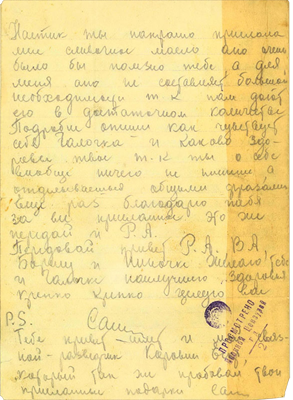 Настик ты напрасно прислала
мне сливочное масло оно очень
было бы полезно тебе а для
меня оно не составляет большой
необходимости т.к нам дают
его в достаточном количестве
Подробно опиши как чувствует
себя Галочка и каково здо-
ровье твое т.к ты о себе
вообще ничего не пишеш а
отделываешся общими фразами
еще раз благодарю тебя
за вы присланное это же
передай и Р.А.
Передовай привет Р.А. В.А.
Борису и Ниночке Желаю Тебе
и Галочке наилучшего здоровья
крепко крепко целую вас
P.S. Саш
Тебе привет шлет и мой связ-
ной-разведчик
который так же пробовал твои
присланные подарки Саш
ПРОСМОТРЕНО
Военной Цензурой